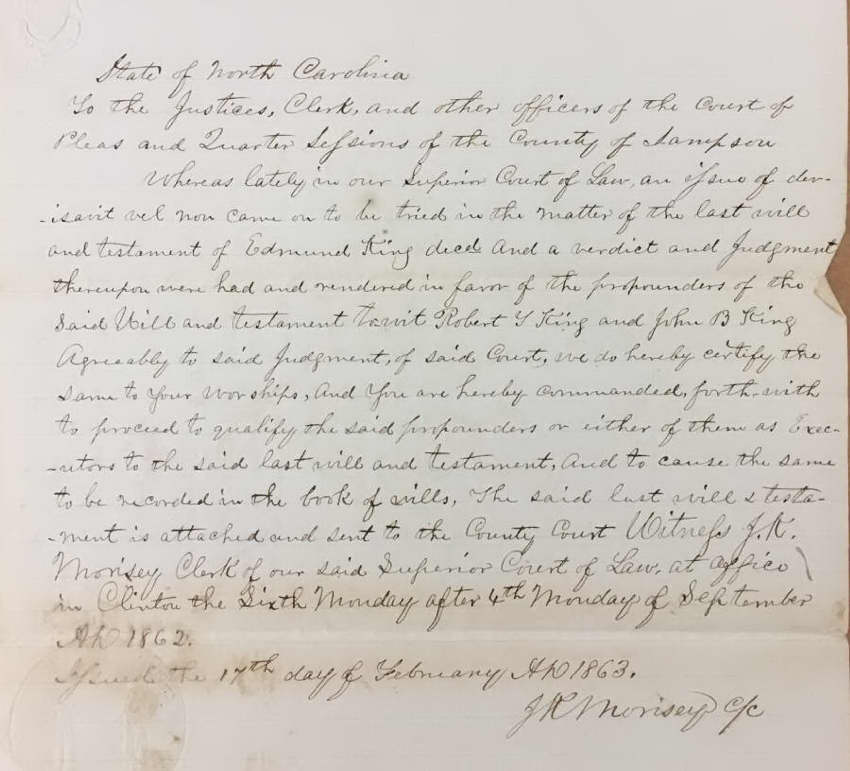 State of North Carolina
To the Justices, Clerk, and other officers of the Court of
Pleas and Quarter Sessions of the County of Sampson
Whereas lately in our Superior Court of Law, an issue of dev-
-isavit vel non came on to be tried in the matter of the last will
and testament of Edmund King decd. And a verdict and Judgment
thereupon were had and rendered in favor of the propounders of the
Said Will and testament to wit Robert Y King and John B King
Agreeably to said Judgment, of said Court, we do hereby certify the
same to Your Worships, And You are hereby commanded, forth-with
to proceed to qualify the said propounders or either of them as Exec-
-utors to the said last will and testament, And to cause the same
to be recorded in the book of wills, The said last will & testa-
-ment is attached and sent to the County Court Witness J. K.
Morisey Clerk of our said Superior Court of Law, at office
in Clinton the Sixth Monday after 4th Monday of September
AD 1862.
Issued the 17th day of February AD 1863.
JK Morisey c/c